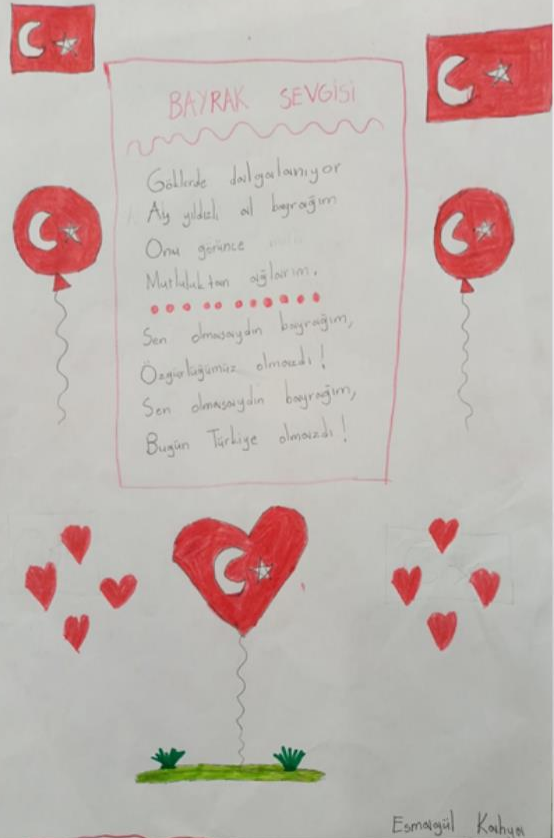 BAYRAK SEVGİSİ
Göklerde dalgalanıyor
Ay yıldızlı al bayrağım
Onu görünce
Mutluluktan ağlarım.
Sen olmasaydın bayrağım,
Özgürlüğümüz olmazdı!
Sen olmasaydın bayrağım,
Bugün Türkiye olmazdı!
Esmagül Kahya